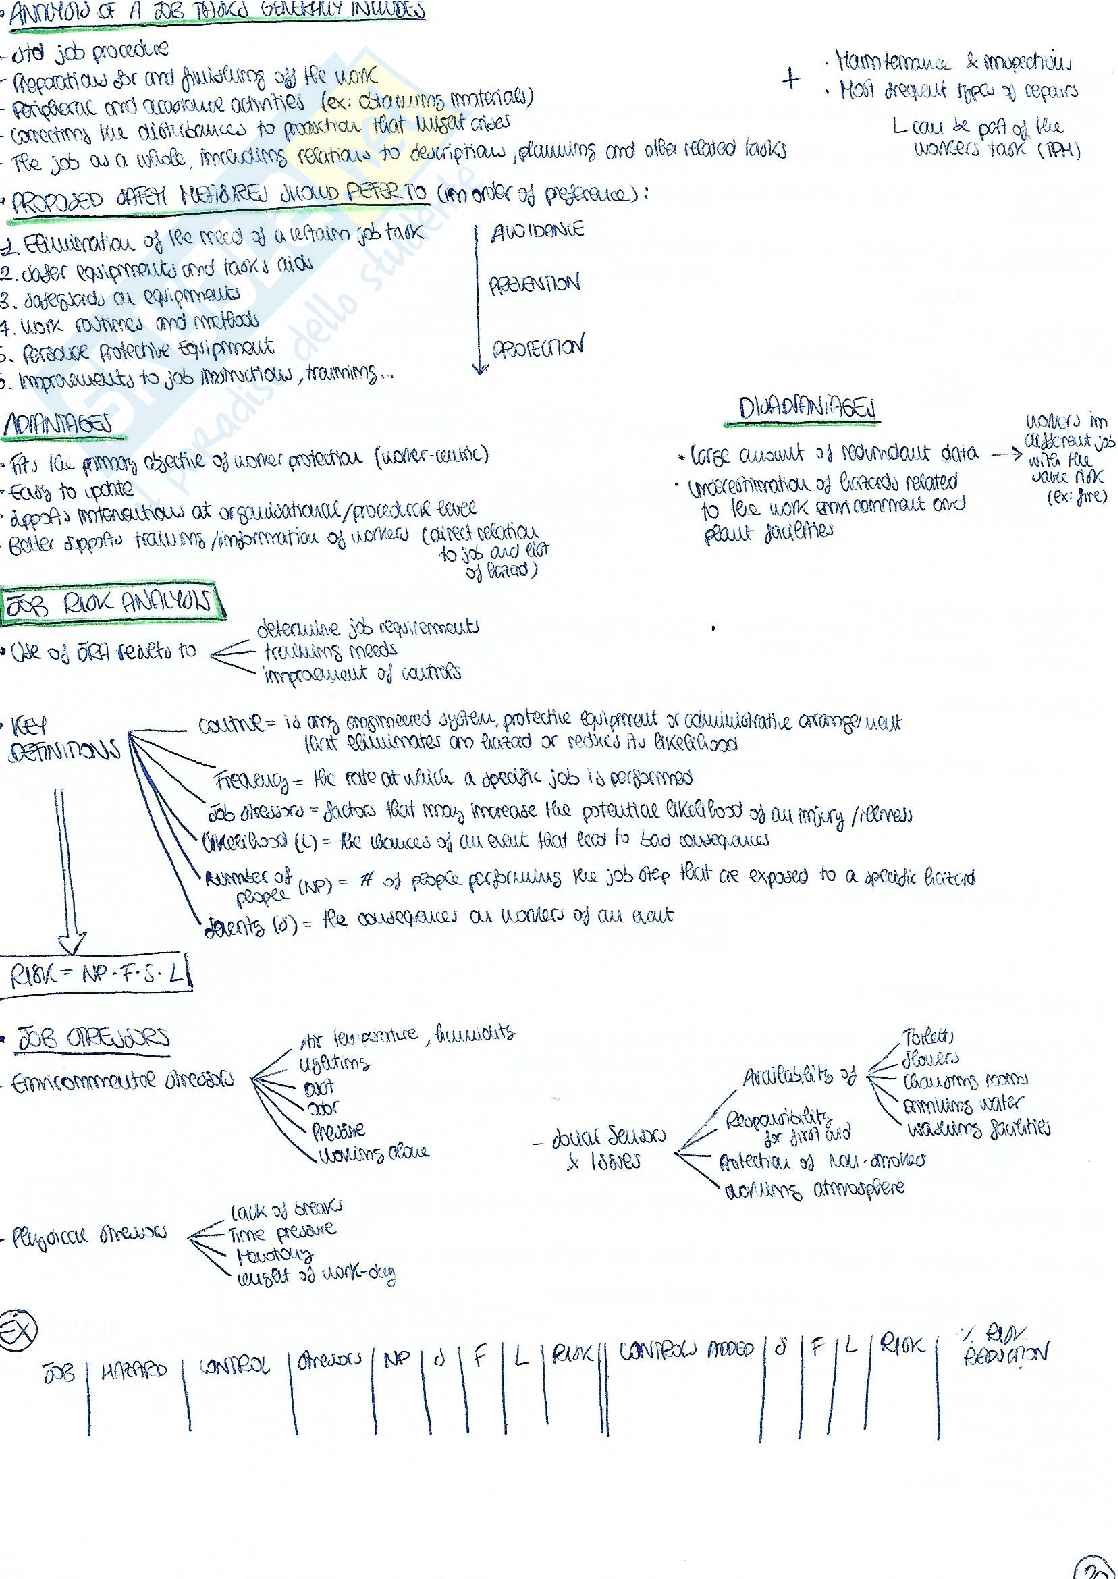 • ANALYSIS OF A JOB TASKS GENERALLY INCLUDES
- Std job procedure
- Preparations for and finishing off the work
- Peripheral and avoidance activities (ex: obtaining materials)
- correcting the disturbances to production that might arises
- The job as a whole, including relation to description, planning and other related tasks
+
• Maintenance & inspections
• Most frequent types of repairs
L can be part of the
workers task (TPM)
• PROPOSED SAFETY MEASURES SHOULD REFER TO (in order of preference):
1. Elimination of the need of a certain job task
2. Safer equipments and tasks aids
3. Safeguards on equipments
4. Work routines and methods
5. Personal Protective Equipment
6. Improvements to job instructions, training...
AVOIDANCE
PREVENTION
PROTECTION
ADVANTAGES
• Fits the primary objective of worker protection (worker-centric)
• Easy to update
• Supports interventions at organisational/procedural level
• Better supports training/information of workers (direct relation
to job and list
of hazard)
DISADVANTAGES
• Large amount of redundant data
workers in
different job
with the
same risk
(ex: fire)
• Underestimation of hazards related
to the work environment and
plant facilities
JOB RISK ANALYSIS
• Use of JRA results to
determine job requirements
training needs
improvement of controls
• KEY
DEFINITIONS
CONTROL = is any engineered system, protective equipment or administrative arrangement
that eliminates an hazard or reduces its likelihood
Frequency = the rate at which a specific job is performed
Job stressors = factors that may increase the potential likelihood of an injury/illness
Likelihood (L) = the chances of an event that lead to bad consequences
Number of
people (NP) = # of people performing the job step that are exposed to a specific hazard
Severity (S) = the consequences on workers of an event
RISK = NP·F·S·L
• JOB STRESSORS
- Environmental stressors
Air temperature, humidity
Lightings
Dust
Odor
Pressure
Working alone
- Social Sensors
& Issues
Availability of
Toilets
Showers
Changing rooms
Drinking water
Washing facilities
Responsibility
for first aid
Protection of non-smokers
Working atmosphere
- Physical stressors
Lack of breaks
Time pressure
Monotony
Lenght of work-day
EX
JOB | HAZARD | CONTROL | Stressors | NP | S | F | L | RISK || CONTROLS ADDED | S | F | L | RISK | % RISK
REDUCTION
il paradiso dello studente